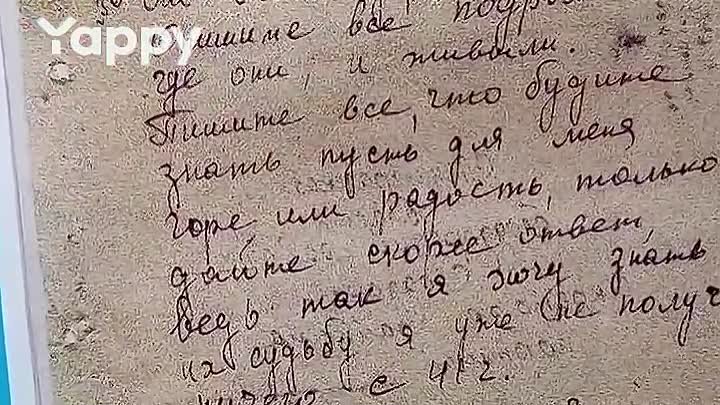 Yappy
Пишите все подро
где они, и живы ли.
Пишите все, что будите
знать пусть для меня
горе или радость, только
дайте скорже ответ,
ведь так я хочу знать
их судьбу я уже не получ
с 41г.